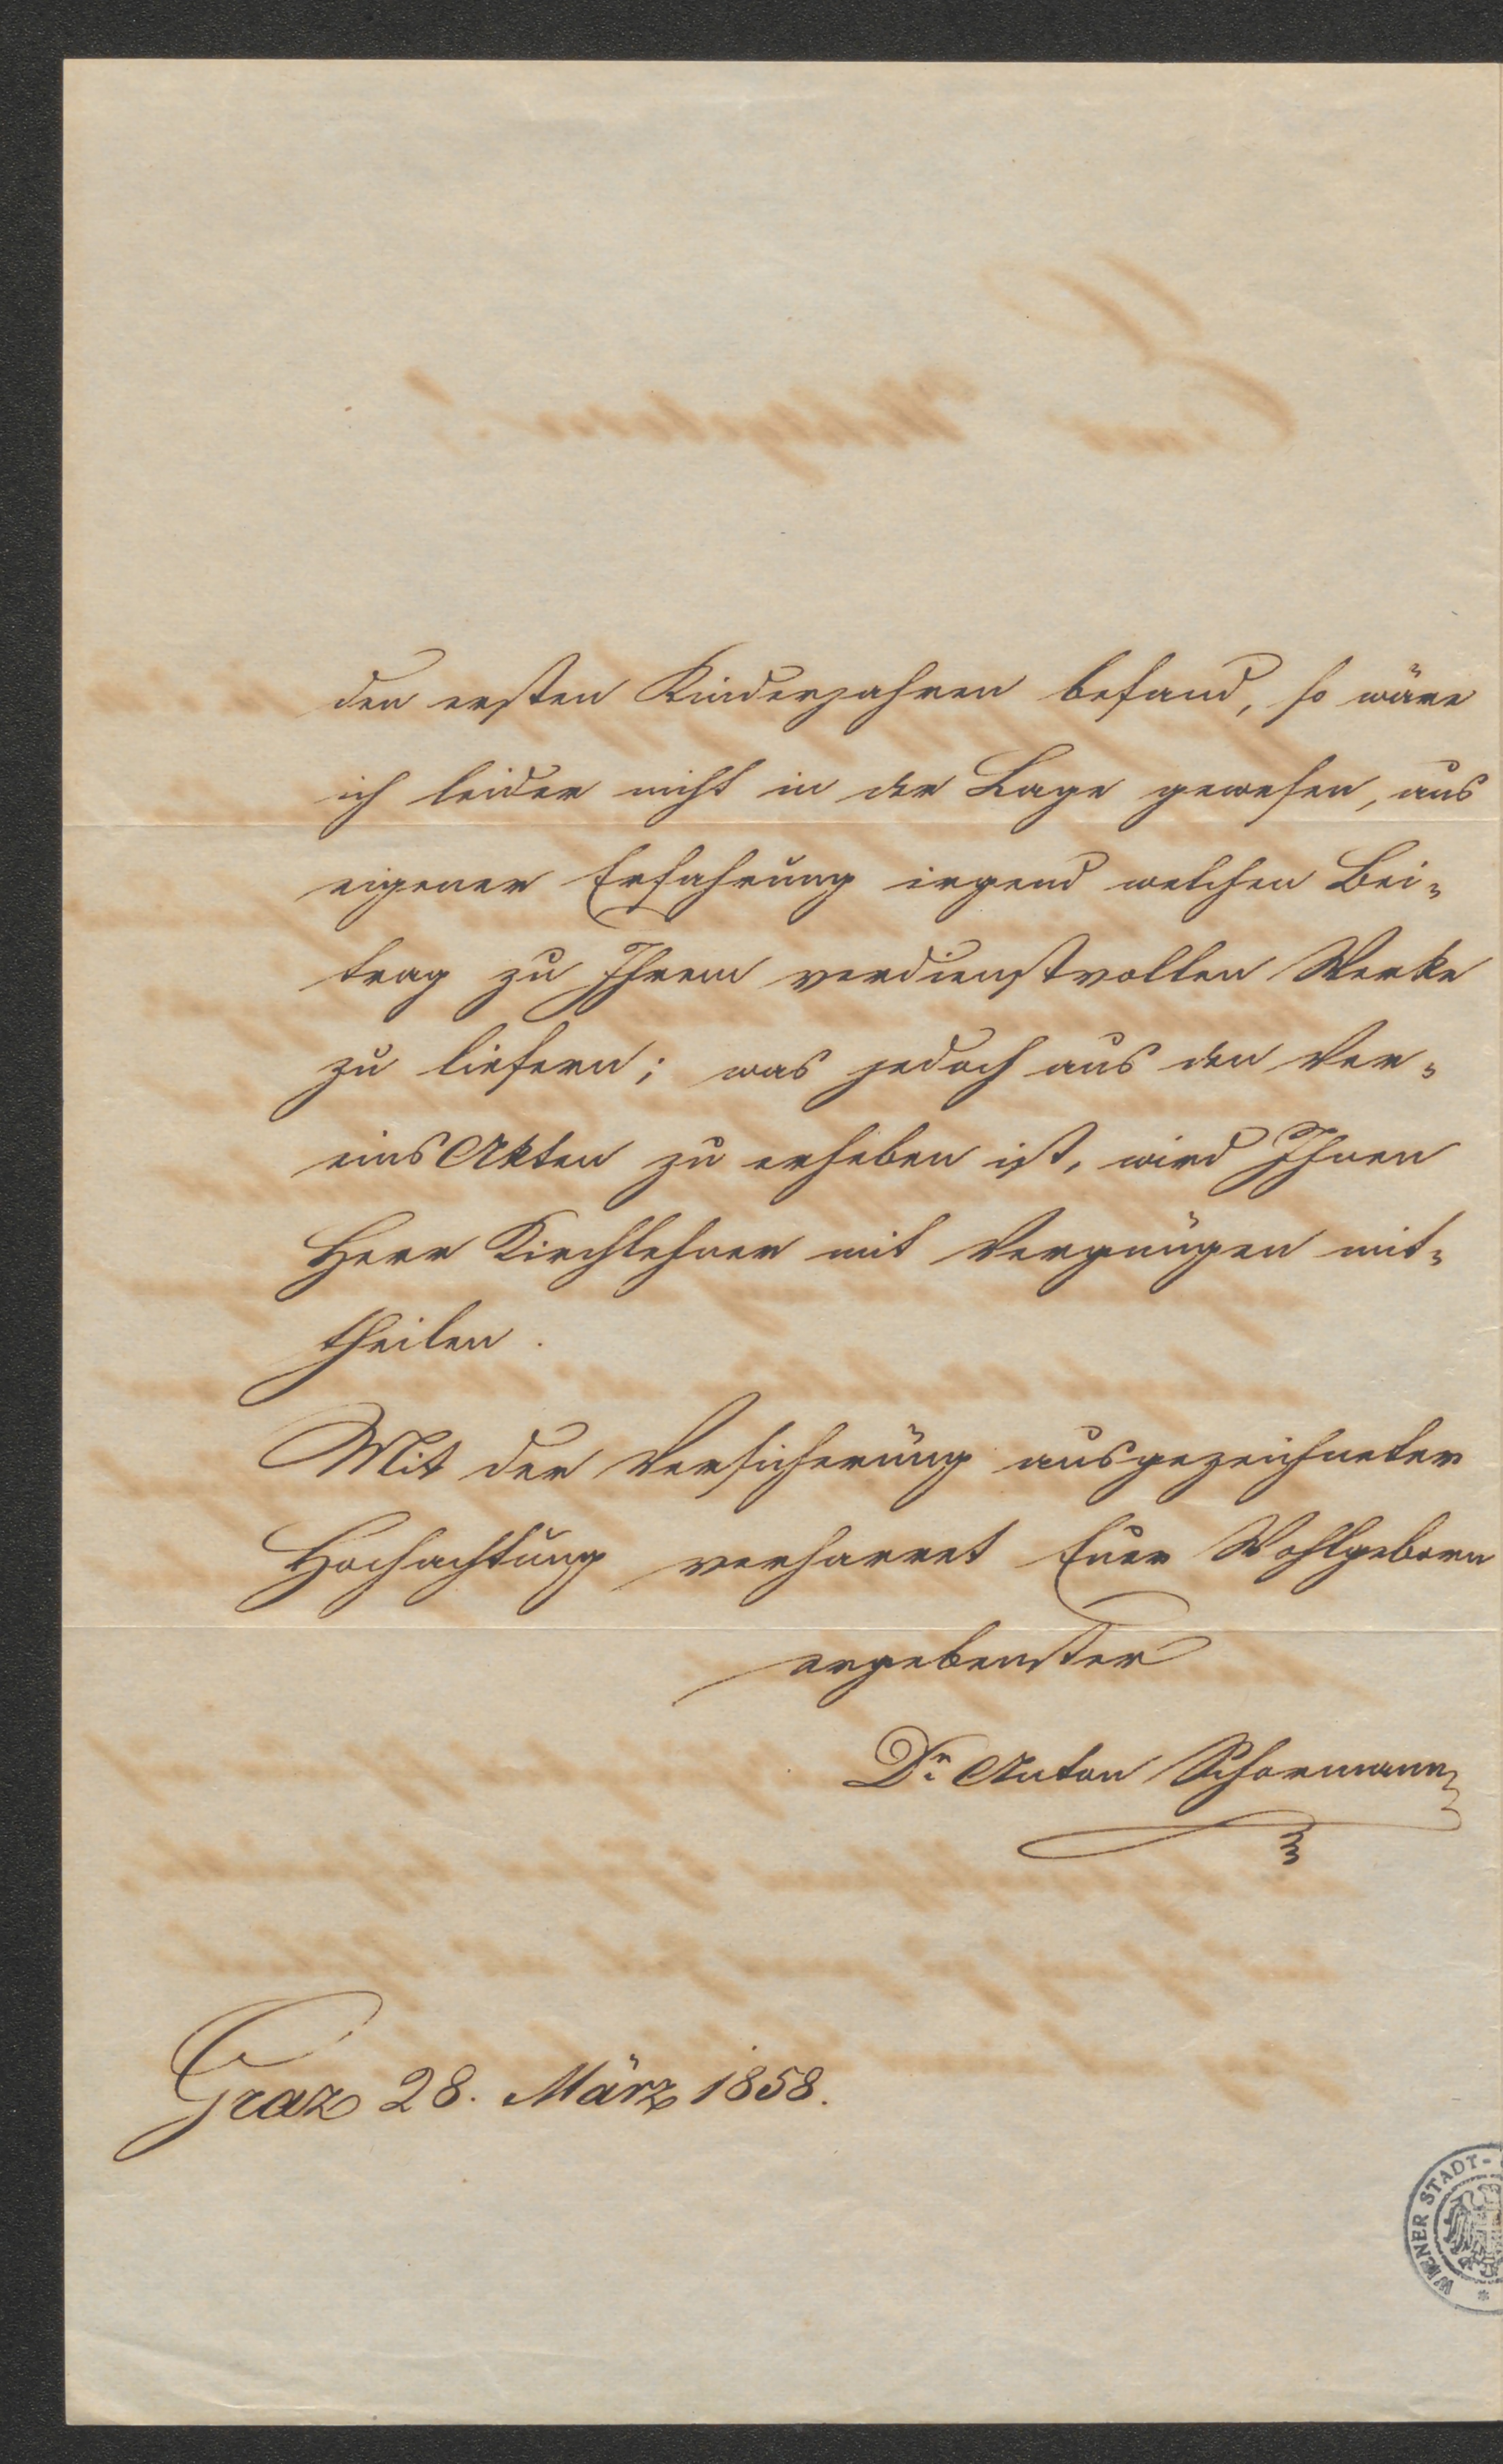 den ersten Kinderjahren befand, so wäre
ich leider nicht in der Lage gewesen, aus
eigener Erfahrung irgend welchen Bei-
trag zu Ihrem verdienstvollen Werke
zu liefern; was jedoch aus den Ver-
eins Akten zu erheben ist, wird Ihnen
Herr Kirchlehner mit Vergnügen mit-
theilen.
Mit der Versicherung ausgezeichneter
Hochachtung verharret Euer Wohlgeborn
ergebenster
Dr. Anton Schormann
Graz 28. März 1858.
WIENER STADT-